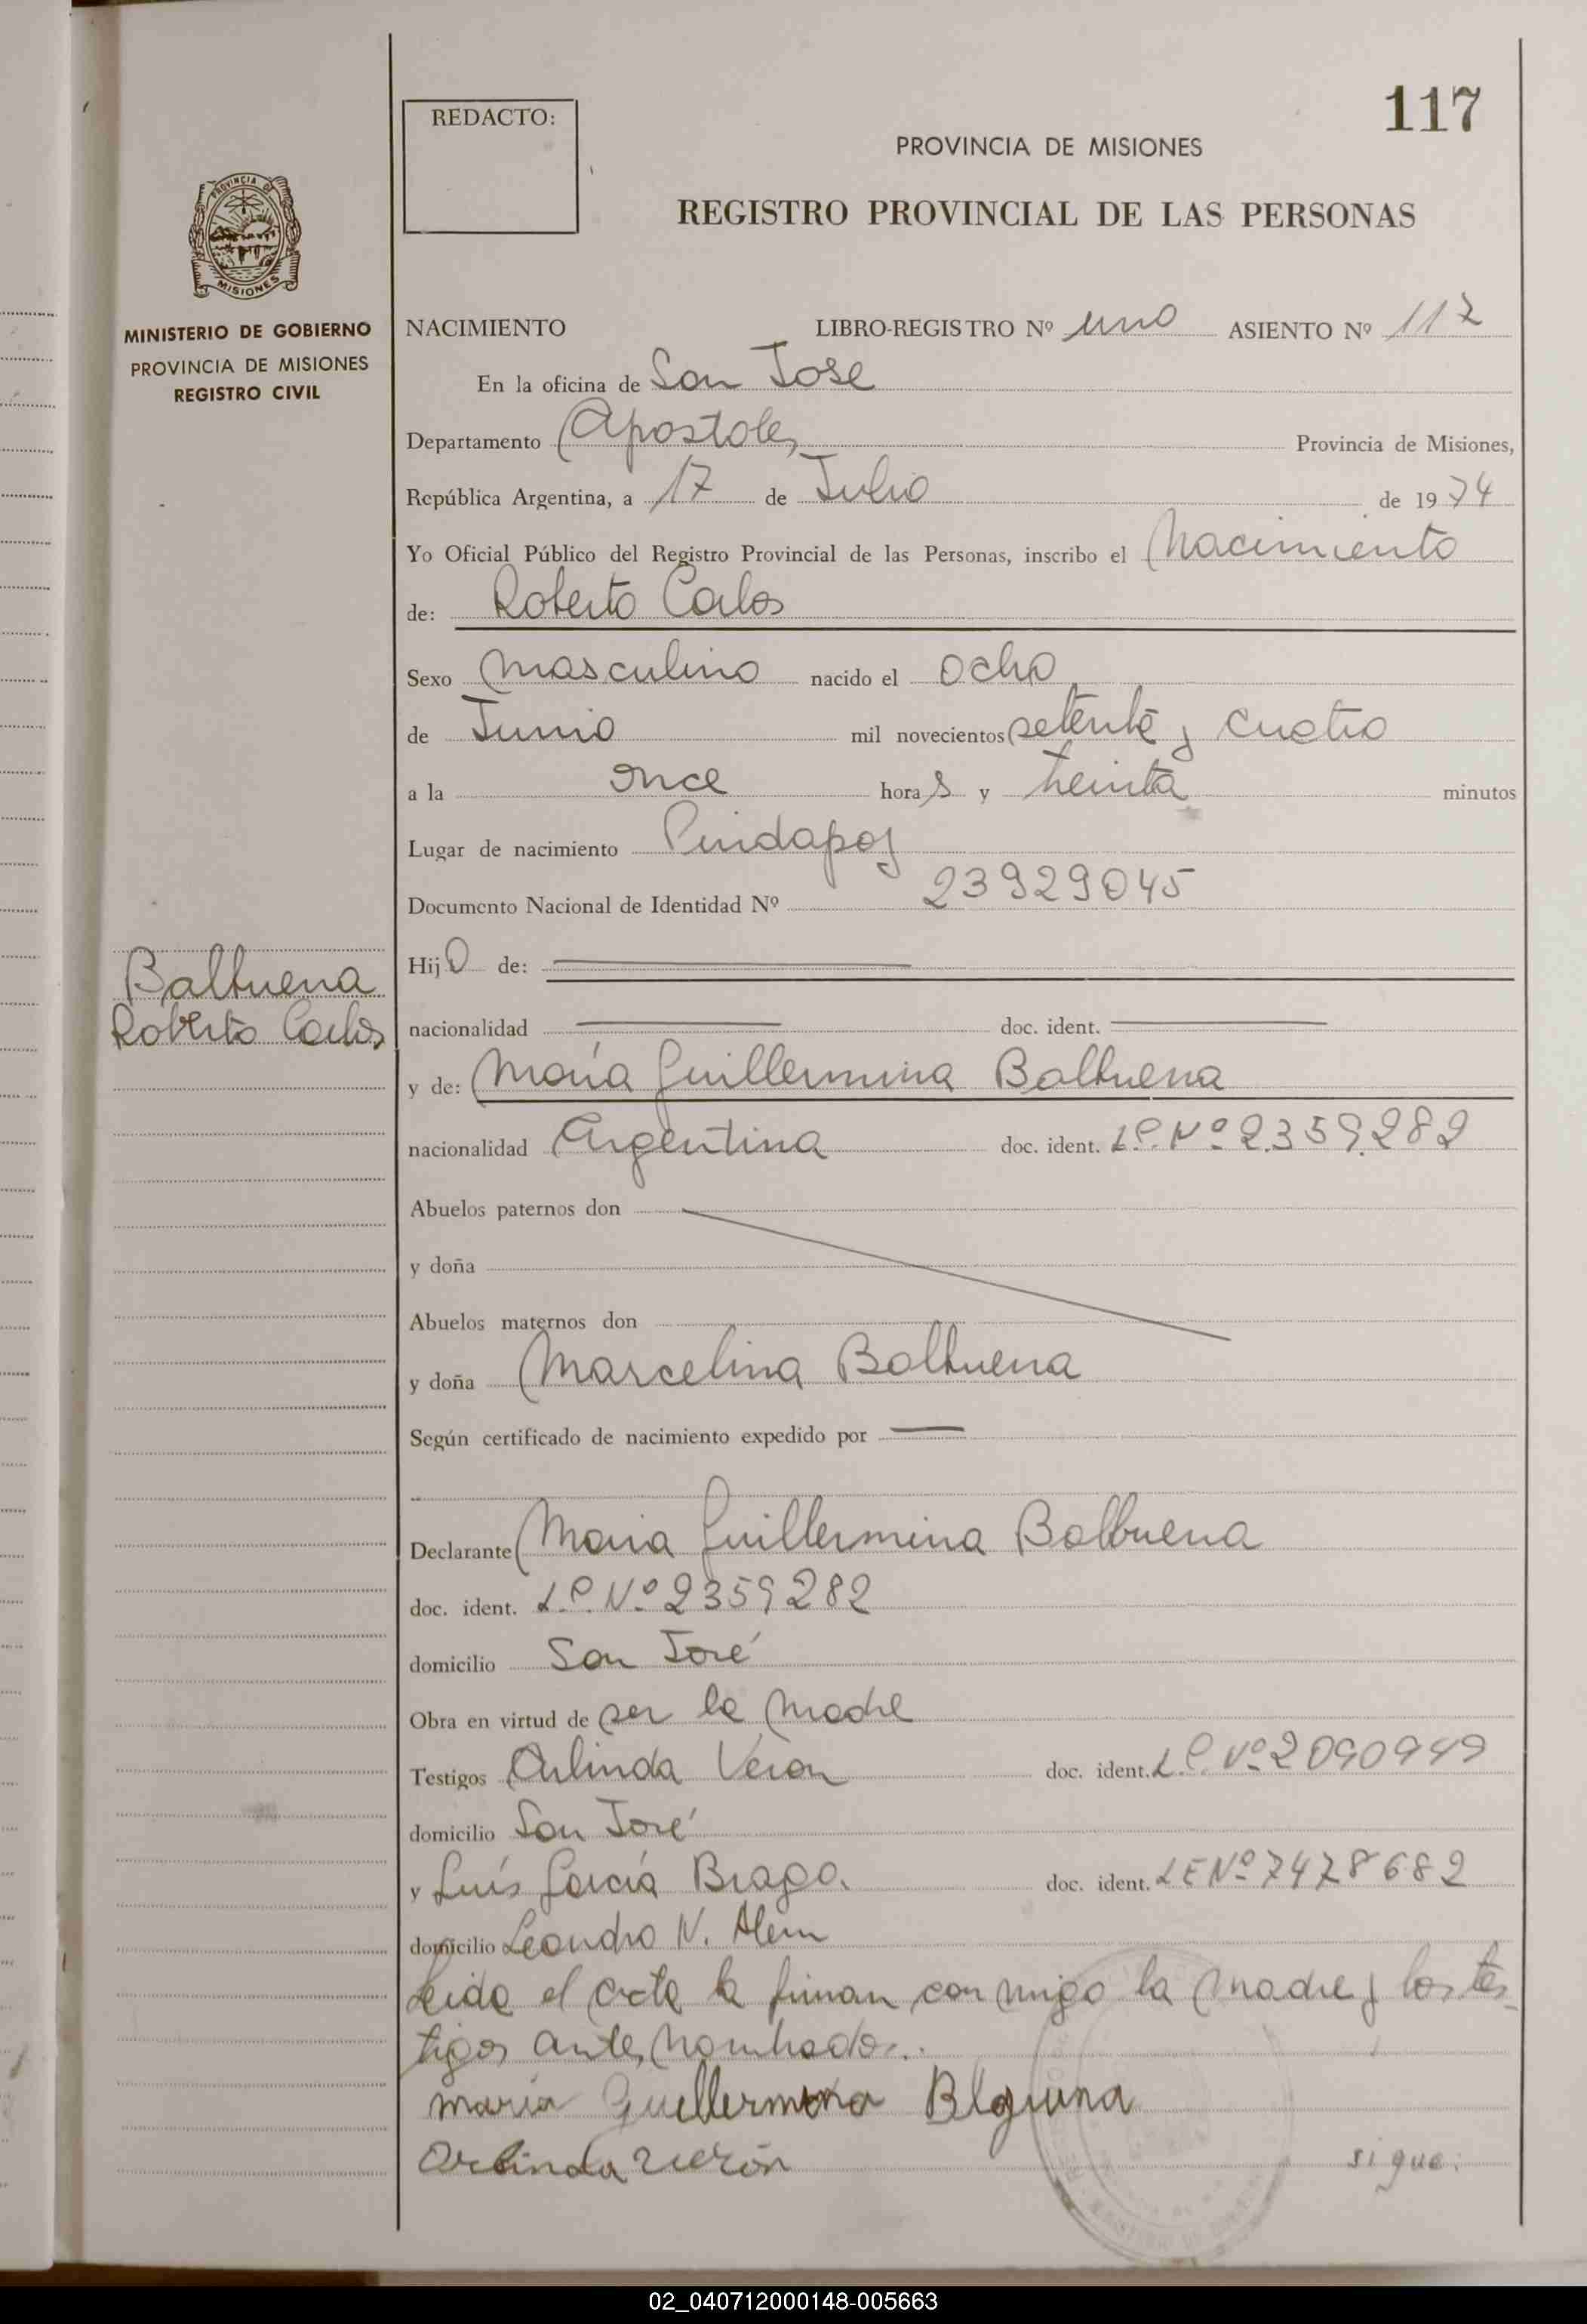 117
REDACTO:
PROVINCIA DE MISIONES
REGISTRO PROVINCIAL DE LAS PERSONAS
PROVINCIA DE
MISIONES
MINISTERIO DE GOBIERNO
PROVINCIA DE MISIONES
REGISTRO CIVIL
NACIMIENTO LIBRO-REGISTRO Nº uno ASIENTO Nº 117
En la oficina de San Jose
Departamento Apostoles Provincia de Misiones,
República Argentina, a 17 de Julio de 1974
Yo Oficial Público del Registro Provincial de las Personas, inscribo el Nacimiento
de: Roberto Carlos
Sexo masculino nacido el ocho
de Junio mil novecientos setenta y cuatro
a la once horas y treinta minutos
Lugar de nacimiento Pindapoy
Documento Nacional de Identidad Nº 23929045
Hijo de:
Balbuena
Roberto Carlos
nacionalidad doc. ident.
y de: María Guillermina Balbuena
nacionalidad Argentina doc. ident. L.C. Nº 2.359.282
Abuelos paternos don
y doña
Abuelos maternos don
y doña Marcelina Balbuena
Según certificado de nacimiento expedido por
Declarante Maria Guillermina Balbuena
doc. ident. L.C. Nº 2359282
domicilio San José
Obra en virtud de ser la madre
Testigos Arlinda Veron doc. ident. L.C. Nº 2090949
domicilio San José
y Luís García Braga. doc. ident. LE Nº 7478682
domicilio Leandro N. Alem
Leida el acta la firman con migo la madre y los tes-
tigos antes nombrados.
maria Guellermina Blguna
Orlinda Verón sigue:
02_040712000148-005663